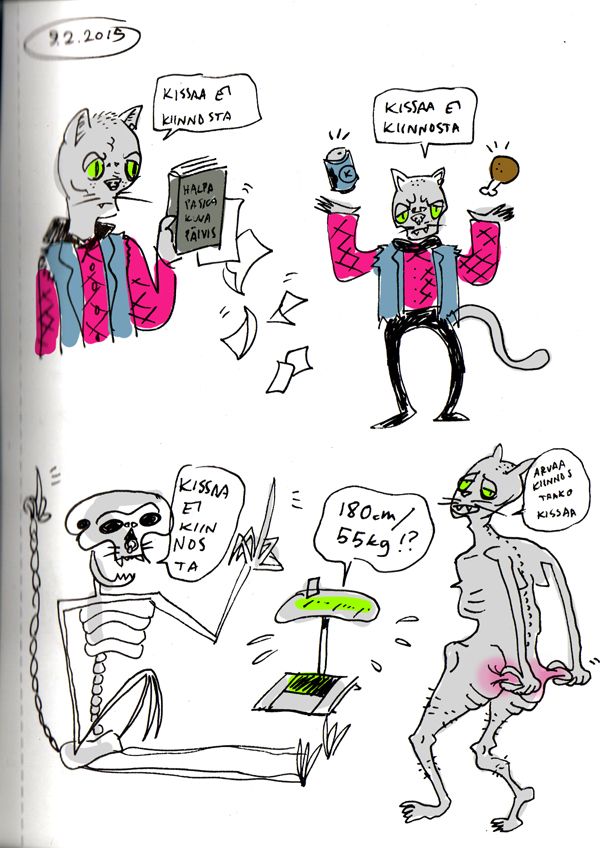 9.2.2015
KISSAA EI
KIINNOSTA
HALPA
PASKA
KUVA
PÄIVIS
KISSAA EI
KIINNOSTA
K
KISSAA
EI
KIIN
NOS
TA
180cm/
55kg !?
ARVAA
KIINNOS
TAAKO
KISSAA